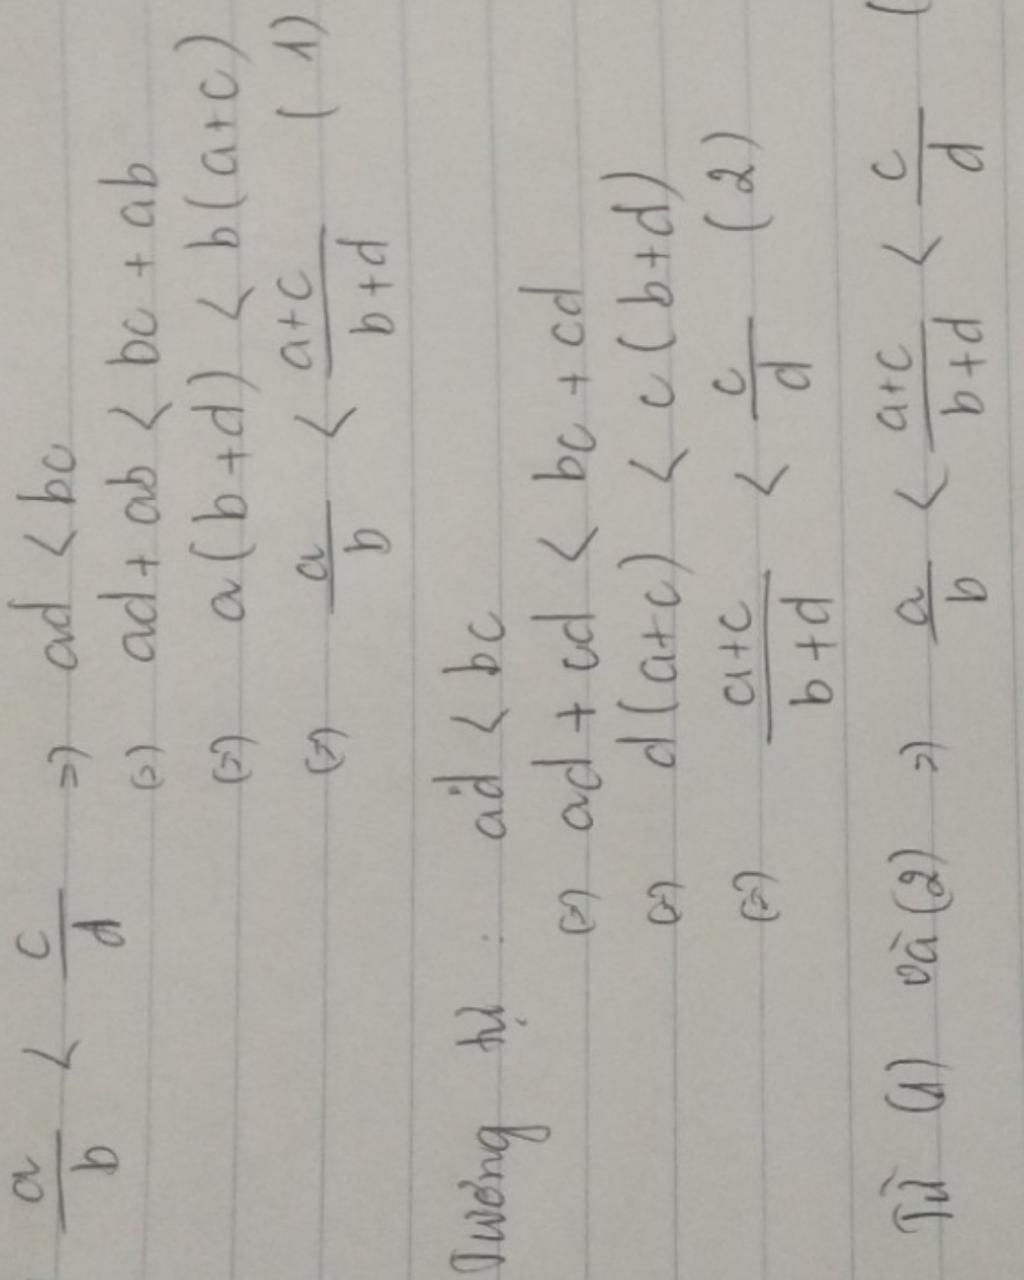 a/b < c/d => ad < bc
<=> ad + ab < bc + ab
<=> a(b+d) < b(a+c)
<=> a/b < a+c/b+d (1)
Tương tự : ad < bc
<=> ad + cd < bc + cd
<=> d(a+c) < c(b+d)
<=> a+c/b+d < c/d (2)
Từ (1) và (2) => a/b < a+c/b+d < c/d (